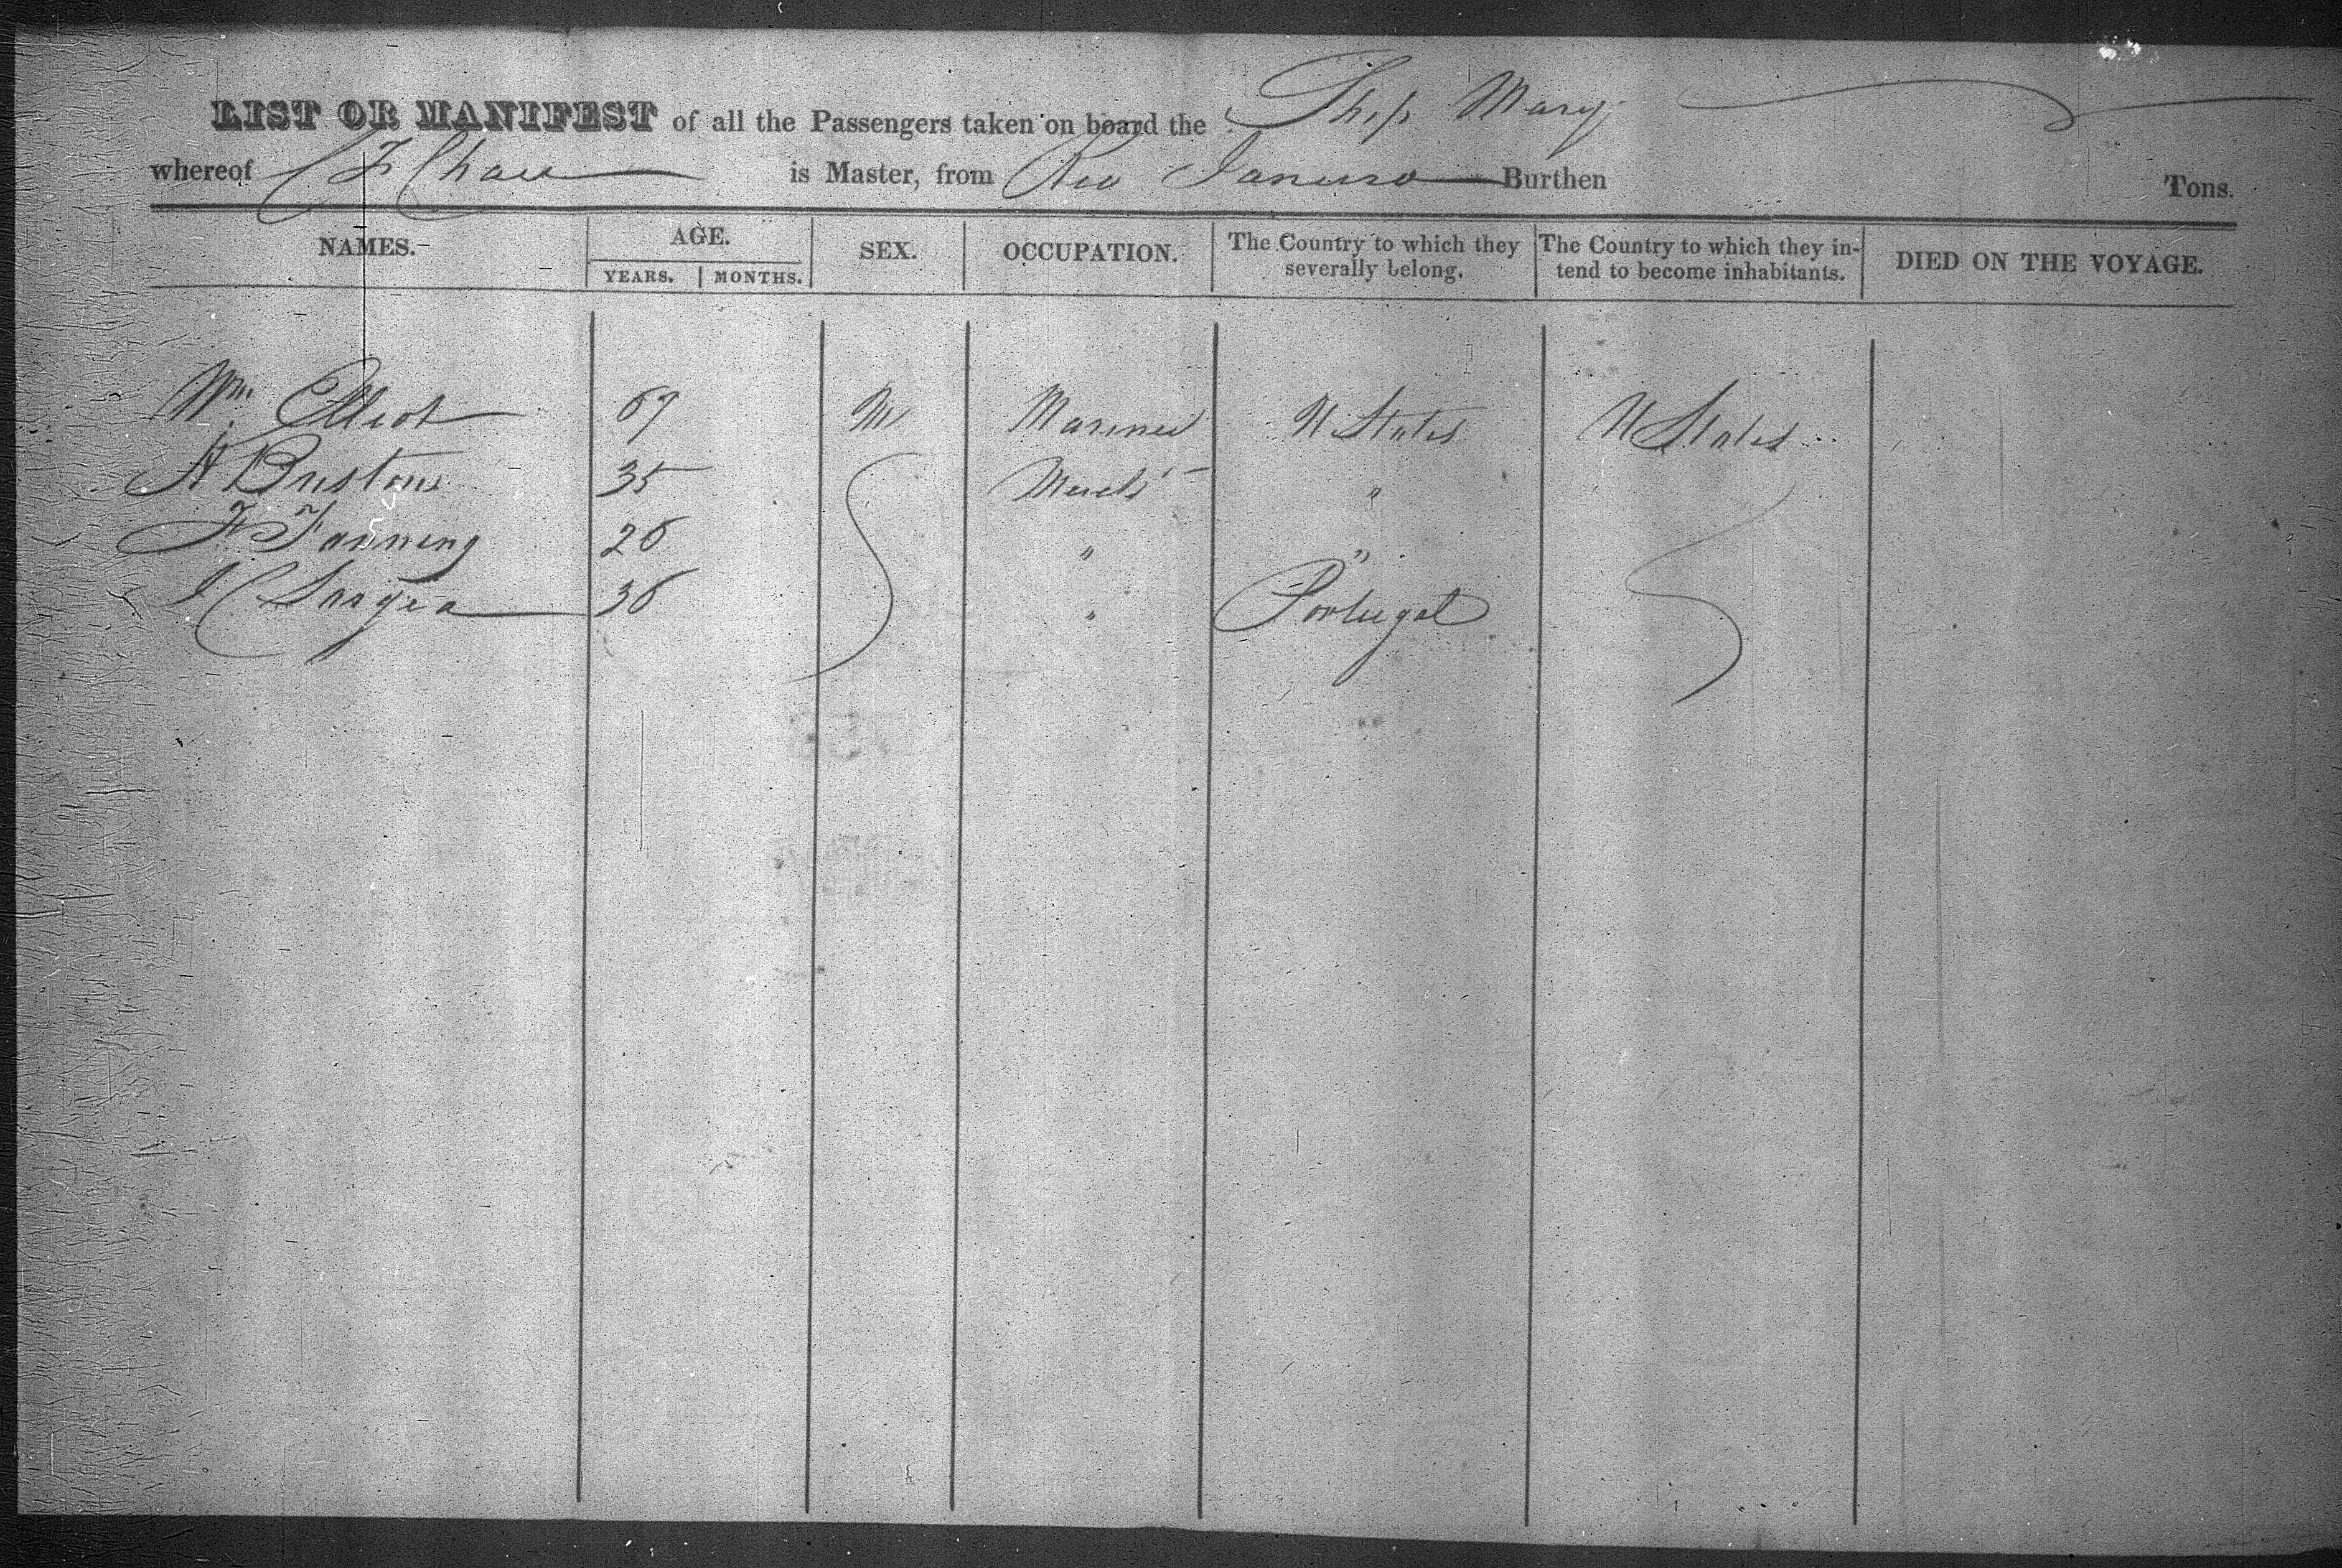 LIST OR MANIFEST of all the Passengers taken on board the Ship Mary
whereof C F Chase is Master, from Rio Janeiro Burthen Tons.
NAMES. AGE. SEX. OCCUPATION. The Country to which they severally belong. The Country to which they intend to become inhabitants. DIED ON THE VOYAGE.
YEARS. MONTHS.
Wm Elliot 67 M Mariner U States U States
A 35 Merch " 
F Fanning 26 " "
J C 36 " Portugal